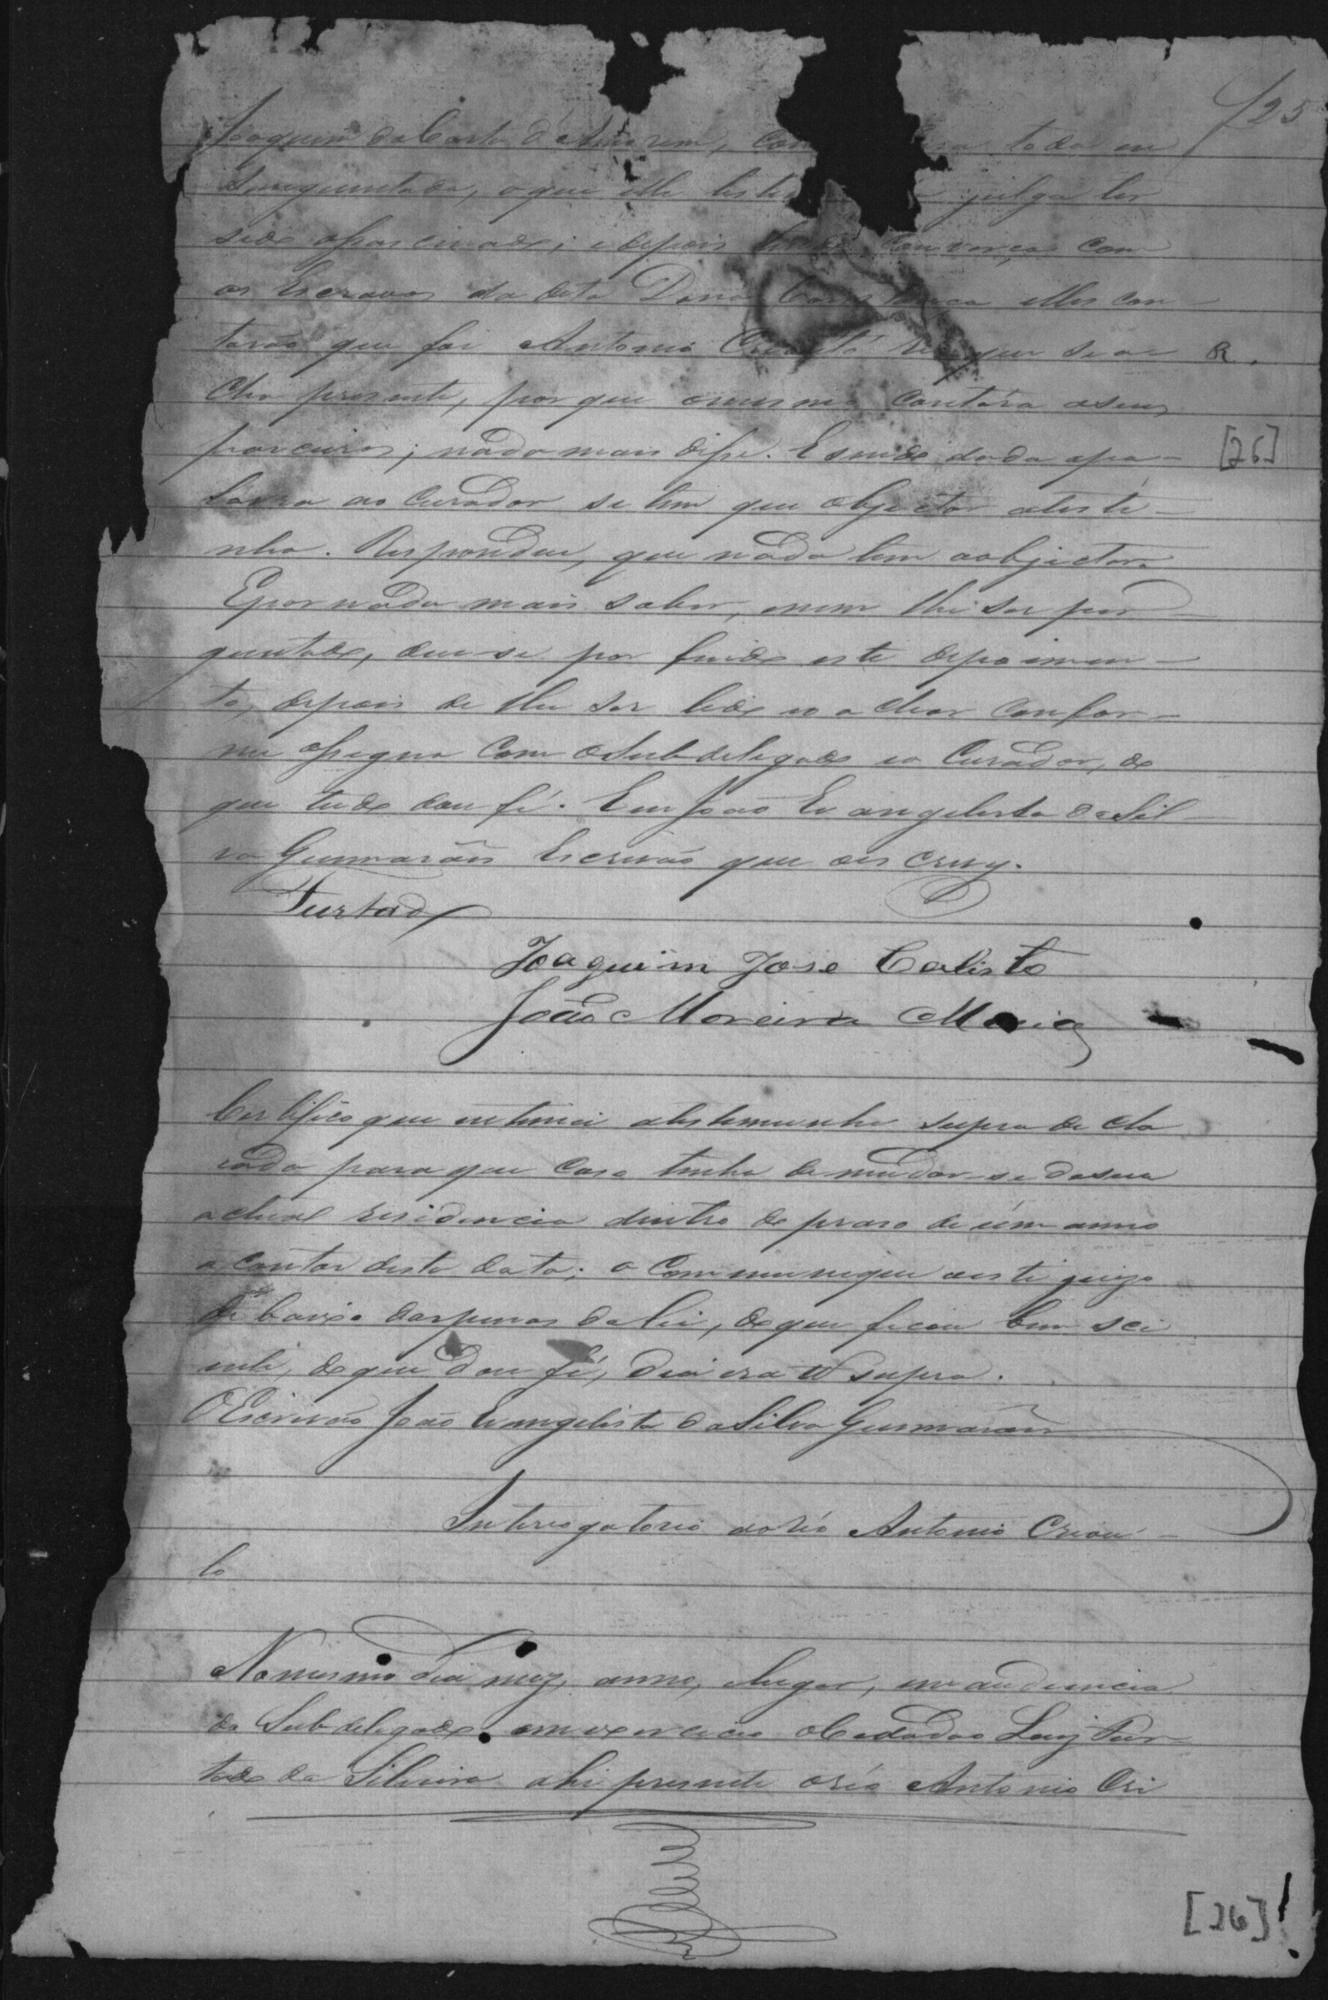 125
Joaquim da Costa d'Amorim, com toda en
sanguentada, o que elle teste julga ter
sido assacinado; e depois conversa com
os Escravos da dita Dona elles con-
tarão que foi Antonio que se a-
R.
cha presente, por que o mesmo contára a seus
parceiros; nada mais disse. E sendo dada a pa-
[26]
lavra ao Curador se tem que objectar a teste-
nha. Respondeu, que nada tem a objectar.
E por nada mais saber, e nem lhe ser per-
guntado, deu-se por findo este depoimen-
to, depois de lhe ser lido e o achar confor-
me assigna com o Subdelegado e o Curador, do
que tudo dou fé. Eu João Evangelista da Sil-
va Guimarães Escrivão que o escrevy.
Furtado
Joaquim Jose Calisto
João Moreira Maia
Certifico que intimei a testemunha supra decla
rada para que caso tenha de mudar-se da sua
actual residencia dentro do praso de um anno
a contar desta data; o communique a este juizo
de baixo das penas da lei, do que ficou bem sci
ente, do que dou fé, dia era ut supra.
O Escrivão João Evangelista da Silva Guimarães
Interrogatorio ao réo Antonio Criou-
lo
No mesmo dia mez, anno, e lugar, em audiencia
do Subdelegado em exercicio o Cidadão Luiz Fur-
tado da Silveira ahi presente o réo Antonio Cri
[26]